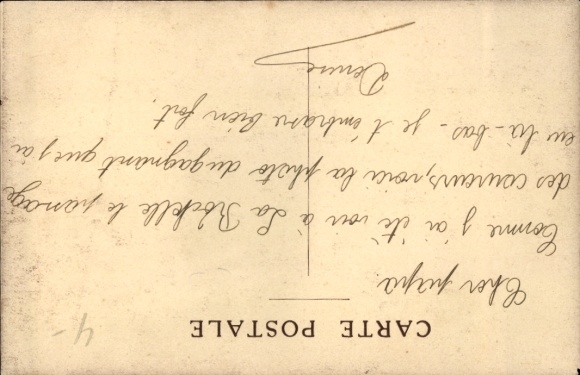 CARTE POSTALE
4-
Cher papa.
Comme j'ai été voir à La Rochelle le passage
des coureurs, voici la photo du gagnant que j'ai
eu là-bas - je t'embrasse bien fort.
Denise